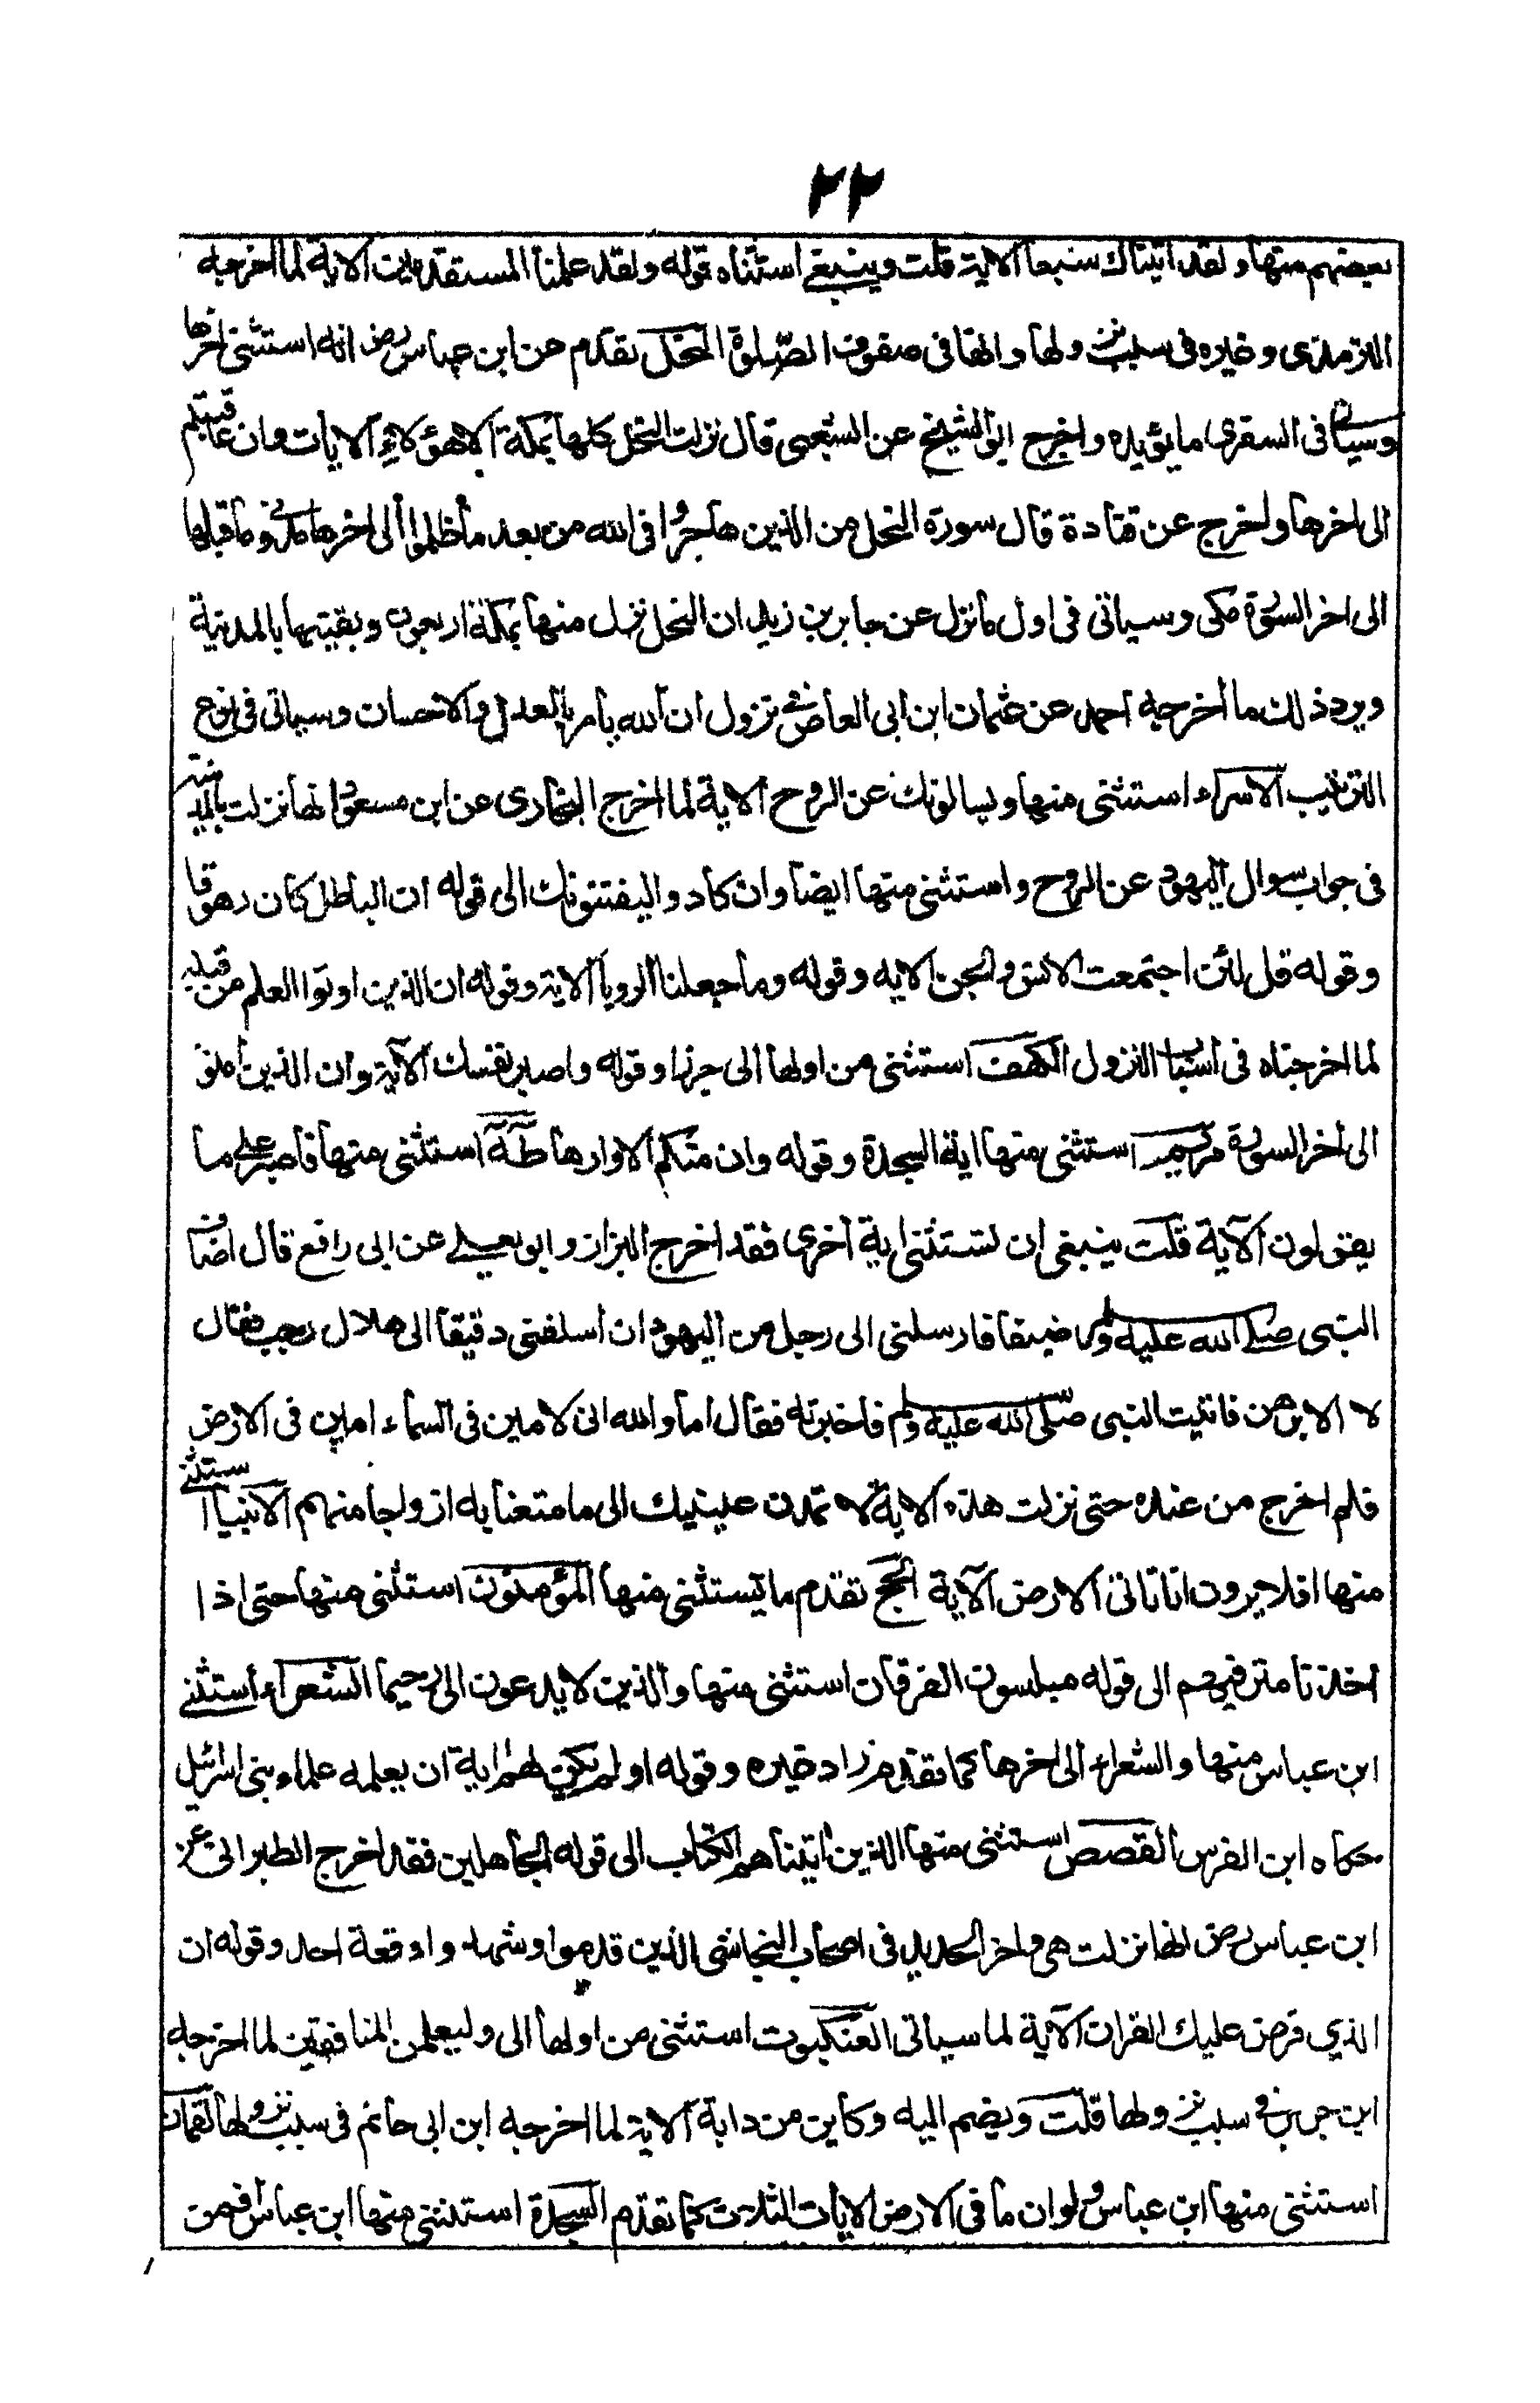 ٢٢
بعضهم منها ولقد اتيناك سبعا الاية قلت وينبغي استثناه قوله ولقد علمنا المستقدمين الاية لما اخرجه
الترمذي وغيره في سبب نزولها وانها في صفوف الصلوة النحل تقدم عن ابن عباس رض انه استثنى اخرها
وسياتي في السفري ما يؤيده واخرج ابو الشيخ عن الشعبى قال نزلت النحل كلها بمكة الا هؤلاء الايات وان عاقبتم
الى اخرها واخرج عن قتادة قال سورة النحل من الذين هاجروا في الله من بعد ما ظلموا الى اخرها مدني وما قبلها
الى اخر السورة مكى وسياتى في اول ما نزل عن جابر بن زيد ان النحل نزل منها بمكة اربعون وبقيتها بالمدينة
ويرد ذلك ما اخرجه احمد عن عثمان ابن ابى العاص في نزول ان الله يأمر بالعدل والاحسان وسياتى في نوع
الترتيب الاسراء استثنى منها ويسالونك عن الروح الاية لما اخرج البخارى عن ابن مسعود انها نزلت بالمدينة
فى جواب سوال اليهود عن الروح واستثنى منها ايضا وان كادوا ليفتنونك الى قوله ان الباطل كان زهوقا
وقوله قل لئن اجتمعت الانس والجن الايه وقوله وما جعلنا الرويا الاية وقوله ان الذين اوتوا العلم من قبله
لما اخرجناه فى اسباب النزول الكهف استثنى من اولها الى جرزا وقوله واصبر نفسك الآية وان الذين امنو
الى اخر السورة مريم استثنى منها اية السجدة وقوله وان منكم الا واردها طه استثنى منها فاصبر على ما
يقولون الآية قلت ينبغى ان تستثنى اية اخرى فقد اخرج البزاز وابو يعلى عن ابى رافع قال اضاف
النبى صلى الله عليه ولم ضيفا فارسلنى الى رجل من اليهود ان اسلفنى دقيقا الى هلال رجب فقال
لا الا برهن فاتيت النبى صلى الله عليه ولم فاخبرته فقال اما والله انى لامين فى السماء امين فى الارض
فلم اخرج من عنده حتى نزلت هذه الاية لا تمدن عينيك الى ما متعنا به ازواجا منهم الانبيا استثنى
منها افلا يرون انا ناتى الارض الآية الحج تقدم ما يستثنى منها المؤمنون استثنى منها حتى اذا
اخذنا مترفيهم الى قوله مبلسون الفرقان استثنى منها والذين لا يدعون الى رحيما الشعراء استثنى
ابن عباس منها والشعراء الى اخرها كما تقدم زاد غيره وقوله او لم يكن لهم اية ان يعلمه علماء بنى اسرائيل
حكاه ابن الفرس القصص استثنى منها الذين اتيناهم الكتاب الى قوله الجاهلين فقد اخرج الطبرانى عن
ابن عباس رض انها نزلت هى واخر الحديد فى اصحاب النجاشى الذين قدموا وشهدوا وقعة احد وقوله ان
الذي فرض عليك القران الآية لما سياتى العنكبوت استثنى من اولها الى وليعلمن المنافقين لما اخرجه
ابن جرير في سبب نزولها قلت ويضم اليه وكأين من دابة الاية لما اخرجه ابن ابى حاتم فى سبب نزولها لقمان
استثنى منها ابن عباس ولو ان ما فى الارض الايات الثلاث كما تقدم السجدة استثنى منها ابن عباس افمن